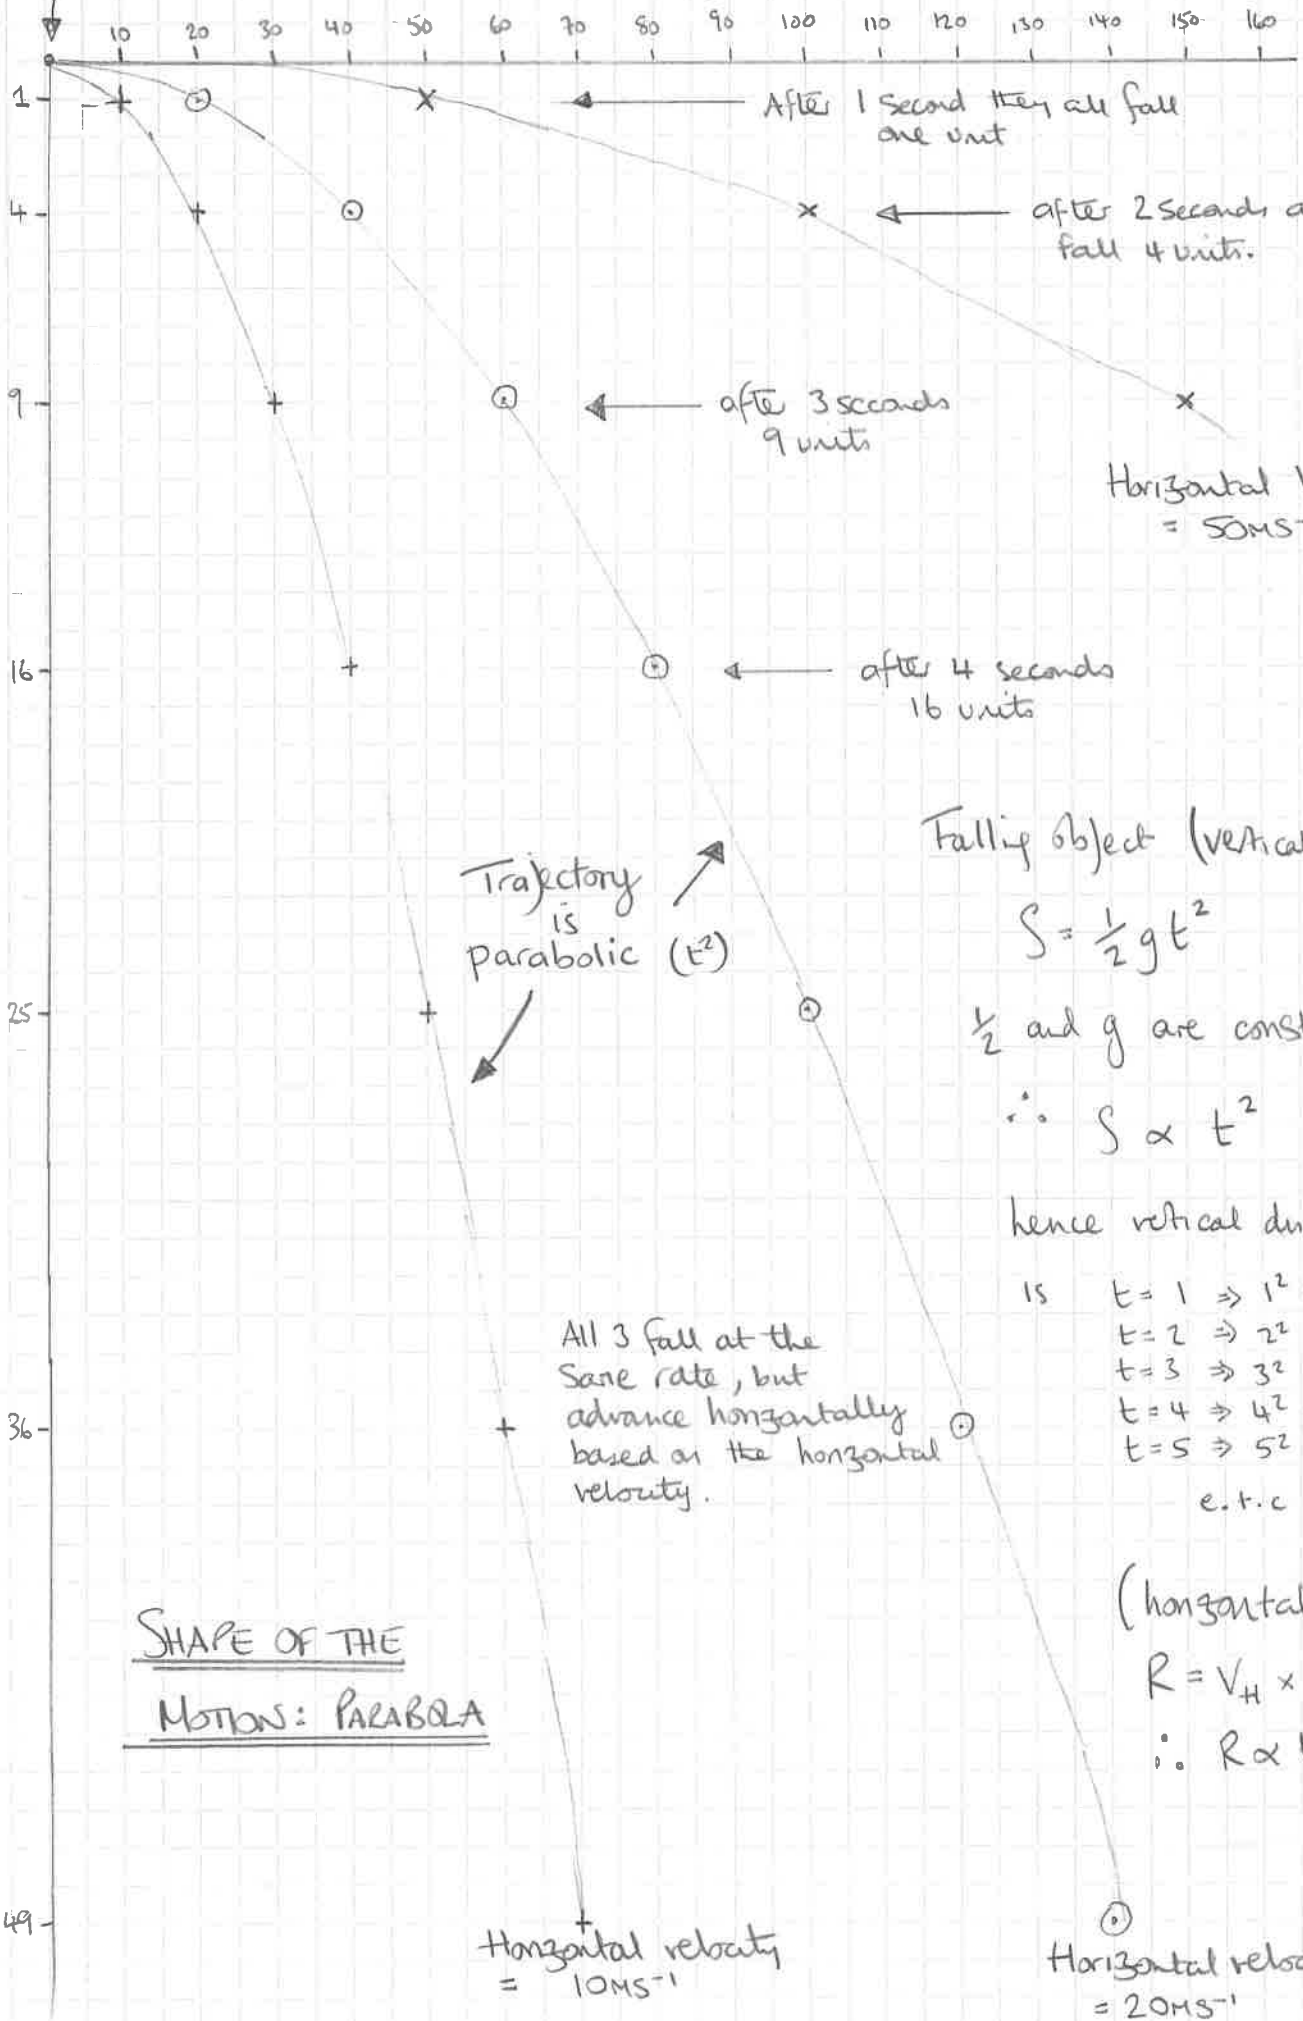 10 20 30 40 50 60 70 80 90 100 110 120 130 140 150 160
1
After 1 second they all fall
one unit
4
after 2 seconds a
fall 4 units.
9
after 3 seconds
9 units
Horizontal
= 50MS⁻
16
after 4 seconds
16 units
Falling object (vertical
S = ½ g t²
Trajectory
is
parabolic (t²)
25
½ and g are const
∴ S ∝ t²
hence vertical
is t = 1 ⇒ 1²
t = 2 ⇒ 2²
t = 3 ⇒ 3²
t = 4 ⇒ 4²
t = 5 ⇒ 5²
e.t.c
All 3 fall at the
same rate, but
advance horizontally
based on the horizontal
velocity.
36
(horizontal
R = V_H ×
∴ R ∝
SHAPE OF THE
MOTION: PARABOLA
49
Horizontal velocity
= 10MS⁻¹
Horizontal veloc
= 20MS⁻¹